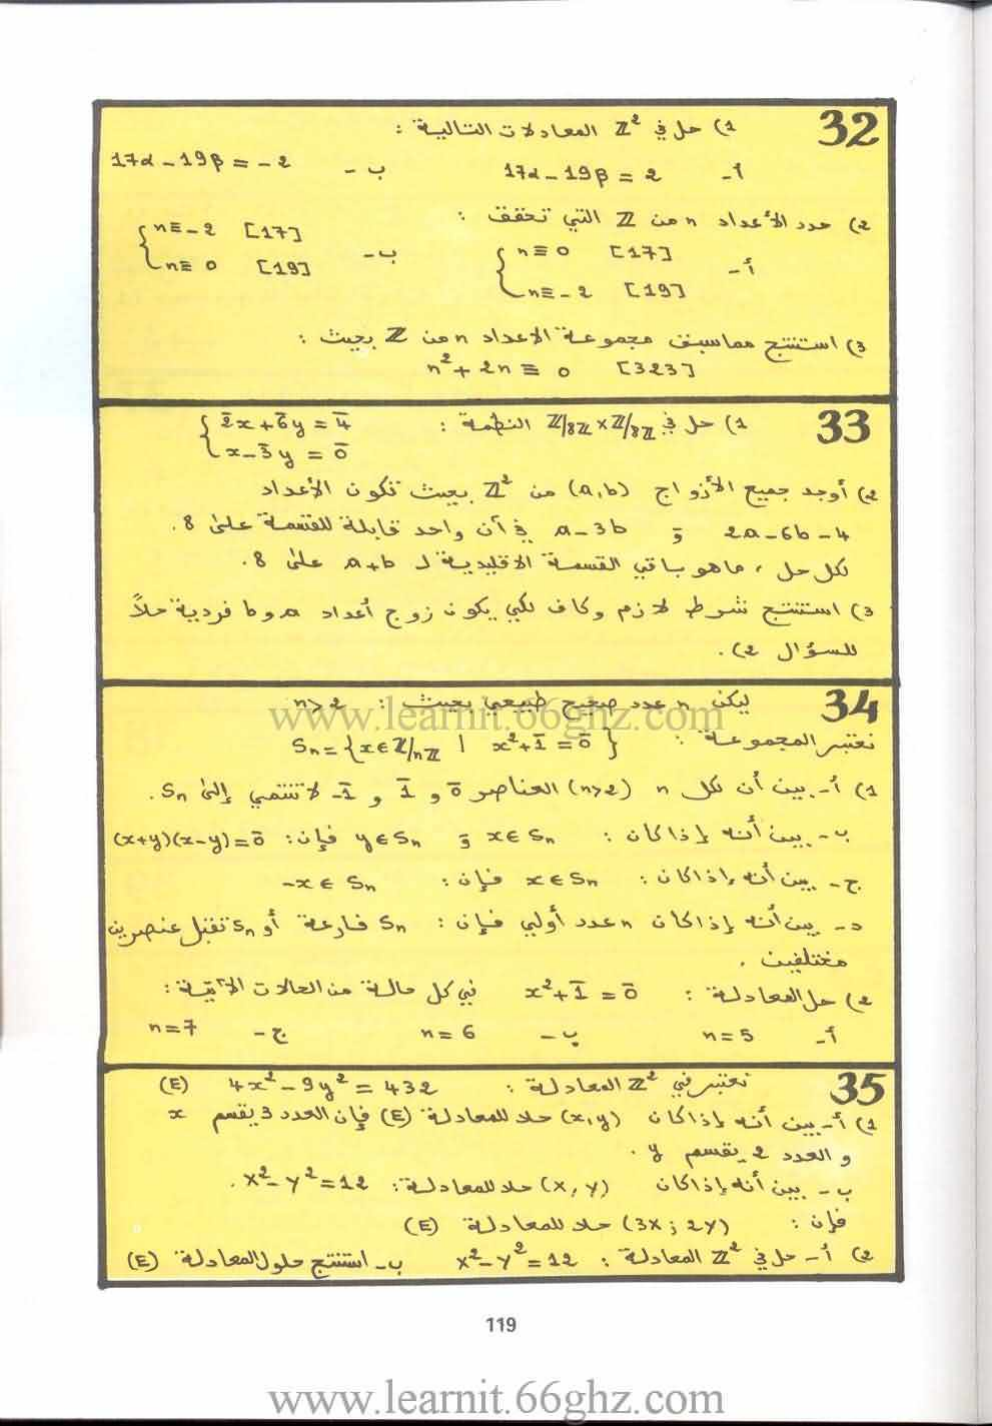 32
1) حل في Z² المعادلات التالية :
أ- 17α - 19β = 2 ب - 17α - 19β = - 2
2) حدد الأعداد n من Z التي تحقق :
أ- { n ≡ 0 [17] ب- { n ≡ - 2 [17]
n ≡ - 2 [19] n ≡ 0 [19]
3) استنتج مماسبق مجموعة الاعداد n من Z بحيث :
n² + 2n ≡ 0 [323]
33
1) حل في Z/8Z × Z/8Z النظمة : { 2̄x + 6̄y = 4̄
x - 3̄y = 0̄
2) أوجد جميع الأزواج (a,b) من Z² بحيث تكون الأعداد
2a - 6b - 4 و a - 3b في آن واحد قابلة للقسمة على 8 .
لكل حل ، ماهو باقي القسمة الاقليدية لـ a+b على 8 .
3) استنتج شرط لازم وكاف لكي يكون زوج أعداد a و b فردية حلاً
للسؤال 2) .
34
ليكن n عدد صحيح طبيعي بحيث : n > 2
نعتبر المجموعة : Sn = { x ∈ Z/nZ | x² + 1̄ = 0̄ }
1) أ- بين أن لكل n (n>2) العناصر 0̄ و 1̄ و -1̄ لا تنتمي إلى Sn .
ب - بين أنه إذا كان : x ∈ Sn و y ∈ Sn فإن : (x+y)(x-y) = 0̄
ج - بين أنه إذا كان : x ∈ Sn فإن : -x ∈ Sn
د - بين أنه إذا كان n عدد أولي فإن : Sn فارغة أو Sn تقبل عنصرين
مختلفين .
2) حل المعادلة : x² + 1̄ = 0̄ في كل حالة من الحالات الآتية :
أ- n = 5 ب - n = 6 ج - n = 7
35
نعتبر في Z² المعادلة : 4x² - 9y² = 432 (E)
1) أ- بين أنه إذا كان (x,y) حلا للمعادلة (E) فإن العدد 3 يقسم x
و العدد 2 يقسم y .
ب - بين أنه إذا كان (X, Y) حلا للمعادلة : X² - Y² = 12 .
فإن : (3X ; 2Y) حلا للمعادلة (E)
2) أ - حل في Z² المعادلة : X² - Y² = 12 ب - استنتج حلول المعادلة (E)
119
www.learnit.66ghz.com
www.learnit.66ghz.com